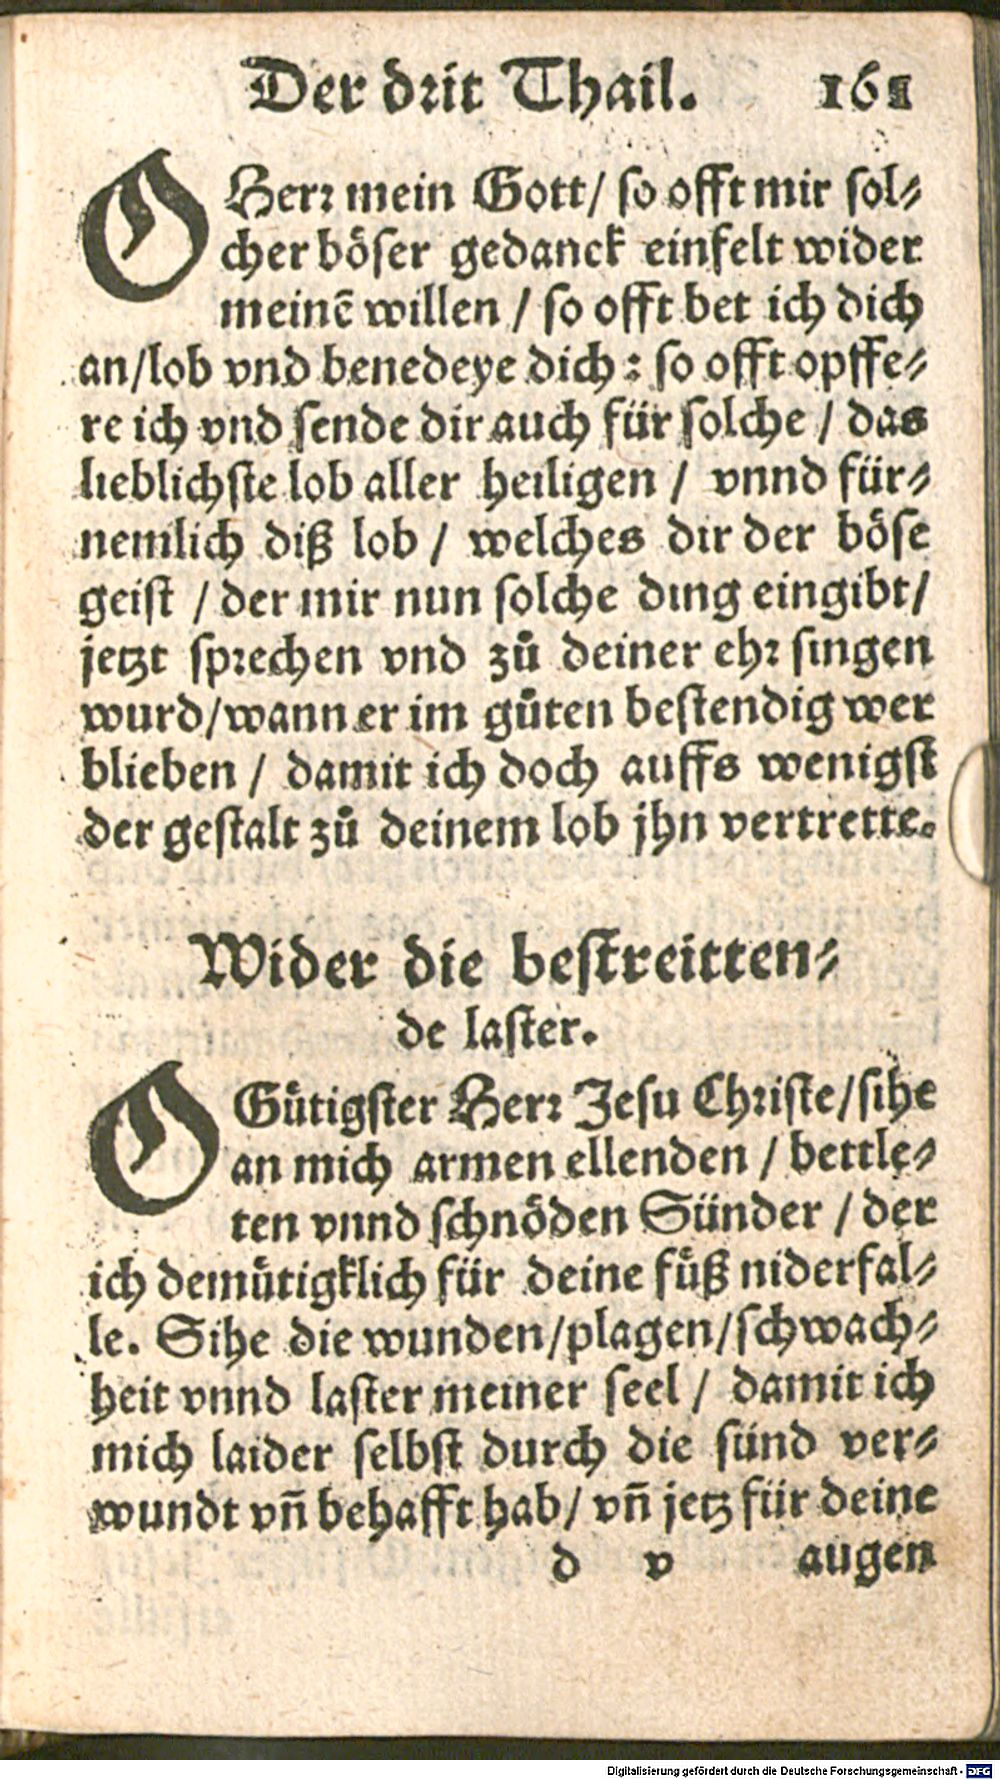 Der drit Thail. 161
O Herr mein Gott/ so offt mir sol⸗
cher böser gedanck einfelt wider
meinẽ willen / so offt bet ich dich
an/lob vnd benedeye dich: so offt opffe⸗
re ich vnd sende dir auch für solche / das
lieblichste lob aller heiligen / vnnd für⸗
nemlich diß lob / welches dir der böse
geist / der mir nun solche ding eingibt/
jetzt sprechen vnd zů deiner ehr singen
wurd/wann er im gůten bestendig wer
blieben / damit ich doch auffs wenigst
der gestalt zů deinem lob jhn vertrette.
Wider die bestreitten⸗
de laster.
O Gütigster Herr Jesu Christe/sihe
an mich armen ellenden / bettle⸗
ten vnnd schnöden Sünder / der
ich demütigklich für deine füß niderfal⸗
le. Sihe die wunden/plagen/schwach⸗
heit vnnd laster meiner seel / damit ich
mich laider selbst durch die sünd ver⸗
wundt vñ behafft hab/ vñ jetz für deine
d v augen
Digitalisierung gefördert durch die Deutsche Forschungsgemeinschaft - DFG